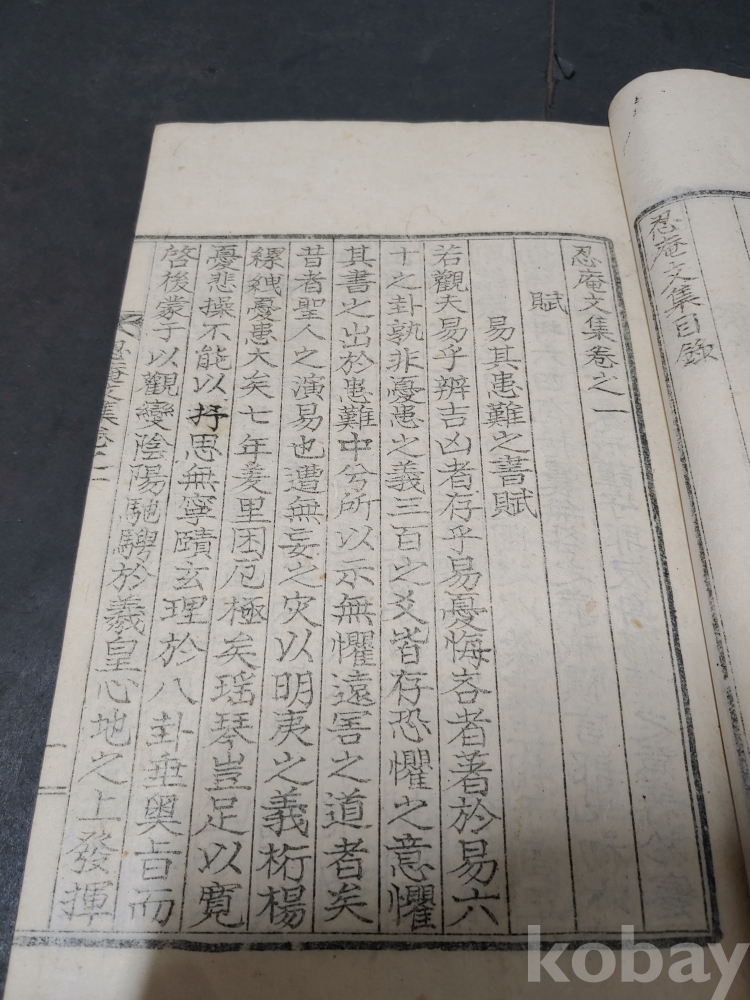 忍庵文集目錄
忍庵文集卷之一
賦
易其患難之書賦
若觀夫易乎辨吉凶者存乎易憂悔吝者著於易六
十之卦孰非憂患之義三百之爻皆存恐懼之意懼
其書之出於患難中兮所以示無懼遠害之道者矣
昔者聖人之演易也遭無妄之灾以明夷之義桁楊
縲絏憂患大矣七年羑里困厄極矣瑶琴豈足以寬
憂悲操不能以抒思無寧賾玄理於八卦垂奧旨而
啓後蒙于以觀變陰陽馳騁於羲皇心地之上發揮
忍庵文集卷之一
一
kobay